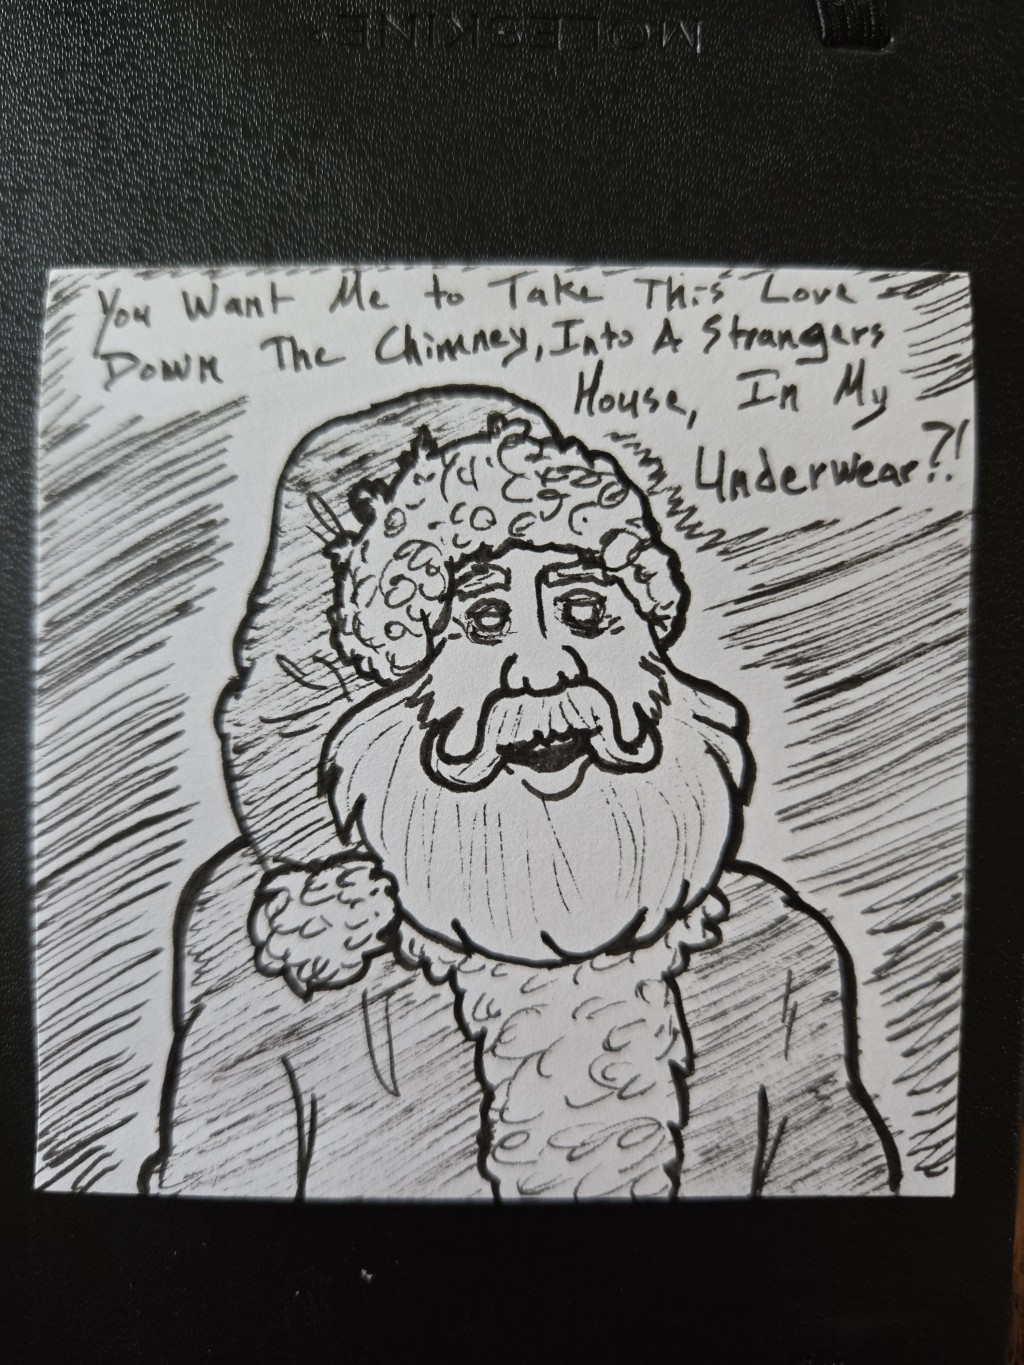 MOLESKINE®
You Want Me to Take This Love
Down The Chimney, Into A Strangers
House, In My
Underwear?!